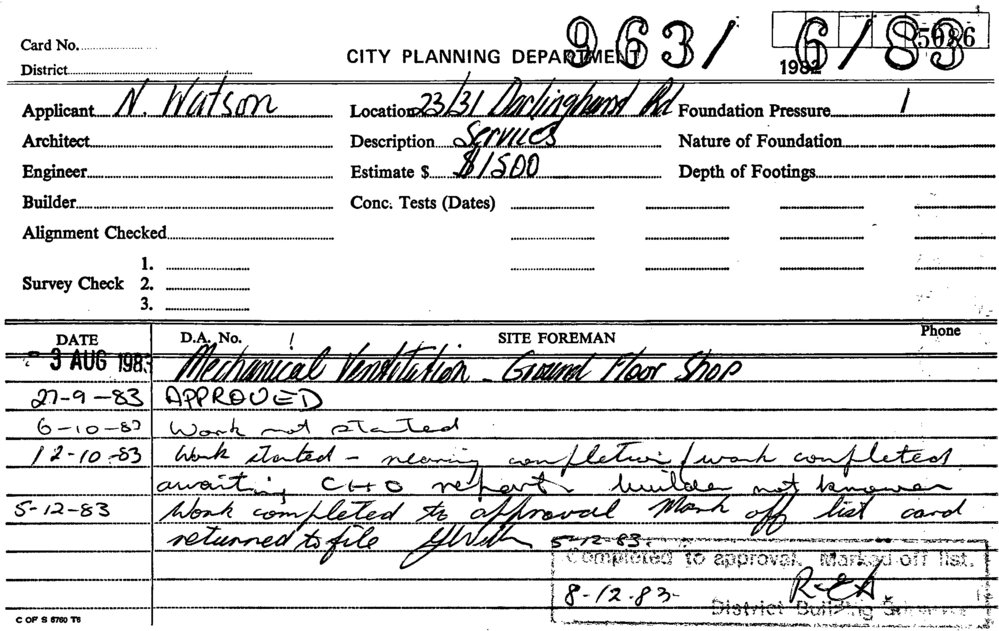 963/ 6/83
5086
Card No.
CITY PLANNING DEPARTMENT
1982
District
Applicant N. Watson Location 23/31 Darlinghurst Rd Foundation Pressure /
Architect Description Services Nature of Foundation
Engineer Estimate $ $1500 Depth of Footings
Builder Conc. Tests (Dates)
Alignment Checked
1.
Survey Check 2.
3.
DATE D.A. No. / SITE FOREMAN Phone
3 AUG 1983 Mechanical Ventilation - Ground Floor Shop
27-9-83 APPROVED
6-10-83 Work not started
12-10-83 Work started - nearing completion / work completed
awaiting CHO report. builder not known
5-12-83 Work completed to approval Mark off list card
returned to file 5-12-83.
Completed to approval. Marked off list.
8-12-83-
District Building Surveyor
C OF S 5760 T6